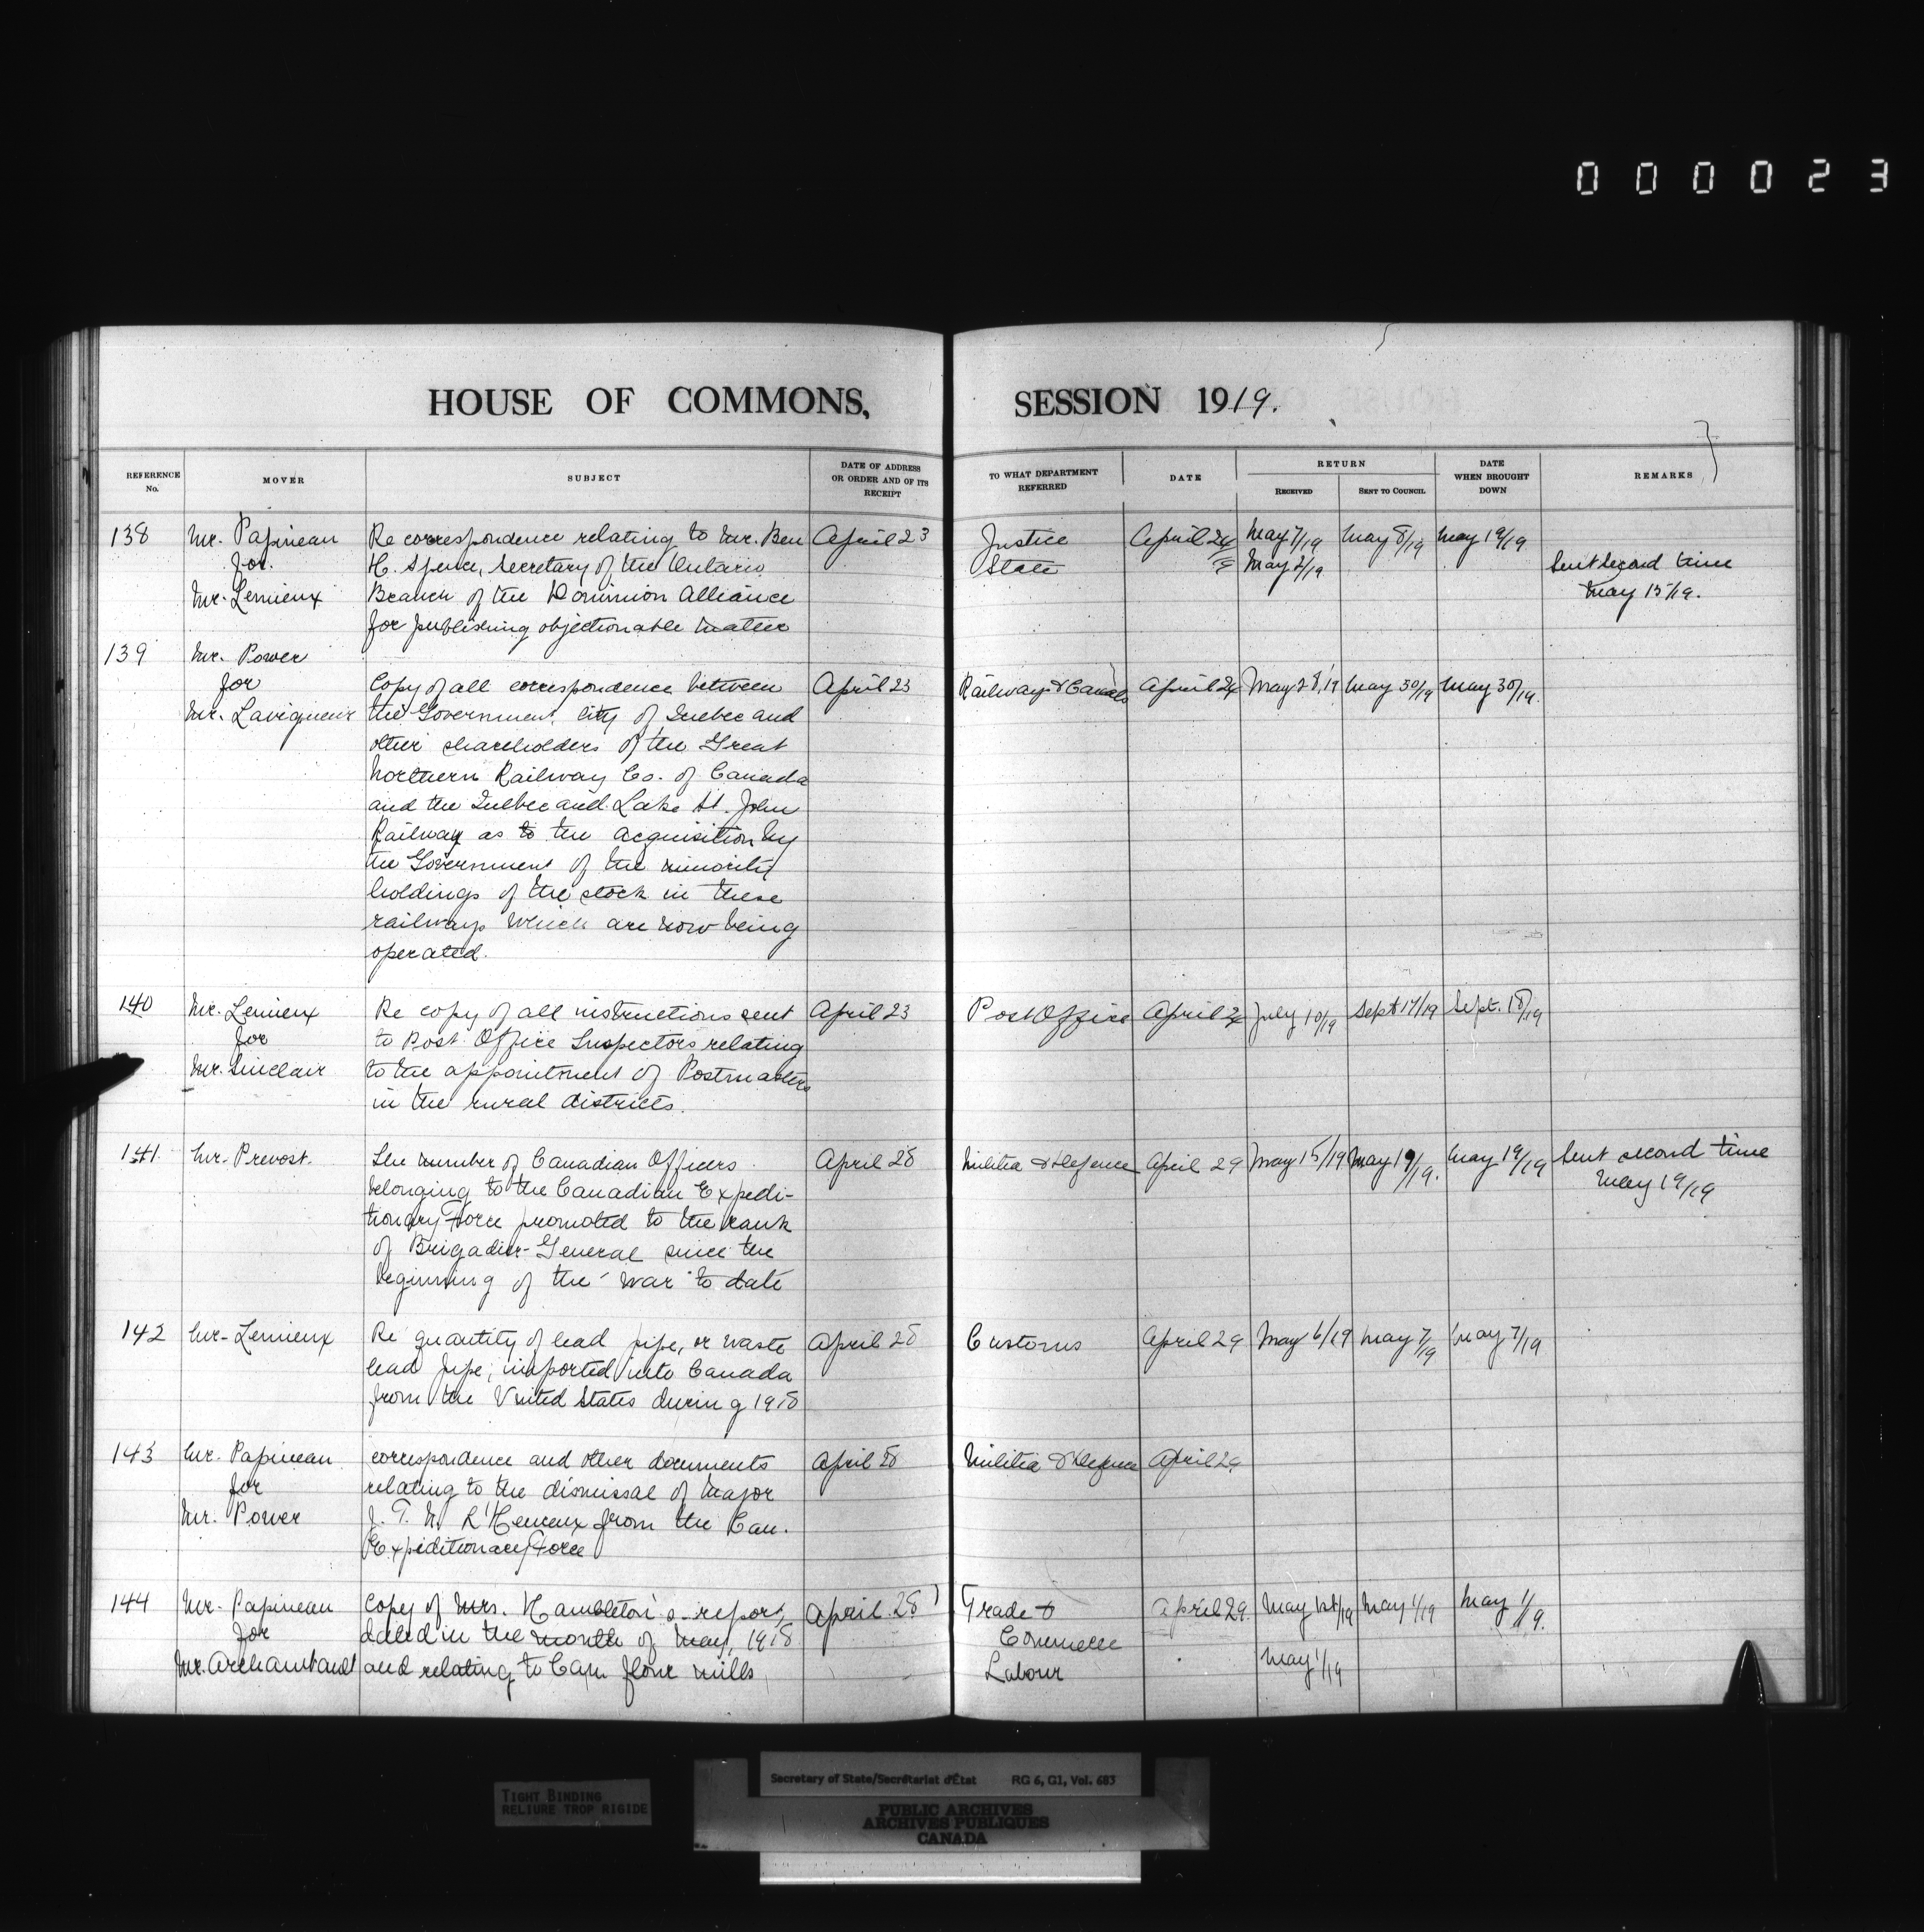 000023
HOUSE OF COMMONS, SESSION 1919.
REFERENCE No. MOVER SUBJECT DATE OF ADDRESS OR ORDER AND OF ITS RECEIPT TO WHAT DEPARTMENT REFERRED DATE RETURN RECEIVED SENT TO COUNCIL DATE WHEN BROUGHT DOWN REMARKS
138 Mr. Papineau Re correspondence relating to Mr. Ben April 23 Justice April 24 May 7/19 May 8/19 May 19/19
for H. Spence, Secretary of the Ontario State May 2/19 Sent second time
Mr. Lemieux Branch of the Dominion Alliance May 15/19.
for publishing objectionable matter
139 Mr. Power
for Copy of all correspondence between April 23 Railways & Canals April 24 May 28/19 May 30/19 May 30/19.
Mr. Lavigueur the Government, City of Quebec and
other shareholders of the Great
Northern Railway Co. of Canada
and the Quebec and Lake St. John
Railway as to the acquisition by
the Government of the minority
holdings of the stock in these
railways which are now being
operated.
140 Mr. Lemieux Re copy of all instructions sent April 23 Post Office April 24 July 10/19 Sept 17/19 Sept. 18/19
for to Post Office Inspectors relating
Mr. Sinclair to the appointment of Postmasters
in the rural districts.
141. Mr. Prevost. The number of Canadian Officers April 28 Militia & Defence April 29 May 15/19 May 19/19. May 19/19 Sent second time
belonging to the Canadian Expedi- May 19/19
tionary Force promoted to the rank
of Brigadier-General since the
beginning of the war to date
142 Mr. Lemieux Re quantity of lead pipe, or waste April 28 Customs April 29 May 6/19 May 7/19 May 7/19
lead pipe, imported into Canada
from the United States during 1918
143 Mr. Papineau correspondence and other documents April 28 Militia & Defence April 29
for relating to the dismissal of Major
Mr. Power J. T. L'Heureux from the Can.
Expeditionary Force
144 Mr. Papineau Copy of Mrs. Hambleton's report, April 28 Trade & April 29. May 1st/19 May 1/19 May 1/19.
for dated in the month of May, 1918 Commerce
Mr. Archambault and relating to Cap flour mills Labour May 1/19
TIGHT BINDING
RELIURE TROP RIGIDE
Secretary of State/Secrétariat d'État RG 6, G1, Vol. 683
PUBLIC ARCHIVES
ARCHIVES PUBLIQUES
CANADA